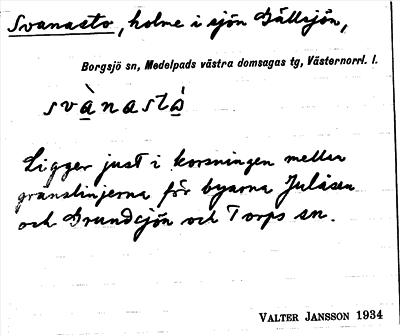 Svanasto, holme i sjön Gällsjön,
Borgsjö sn, Medelpads västra domsagas tg, Västernorrl. l.
svànastǻ
Ligger just i korsningen mellan
gränslinjerna för byarna Julåsen
och Grundsjön och Torps sn.
VALTER JANSSON 1934